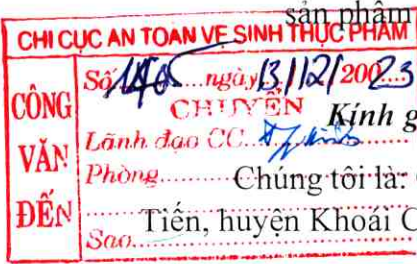 sản phẩm
CHI CỤC AN TOÀN VỆ SINH THỰC PHẨM
CÔNG VĂN ĐẾN
Số ngày 13/12/2023
CHUYỂN
Kính g
Lãnh đạo CC
Phòng
Chúng tôi là:
Tiến, huyện Khoái C
Sao